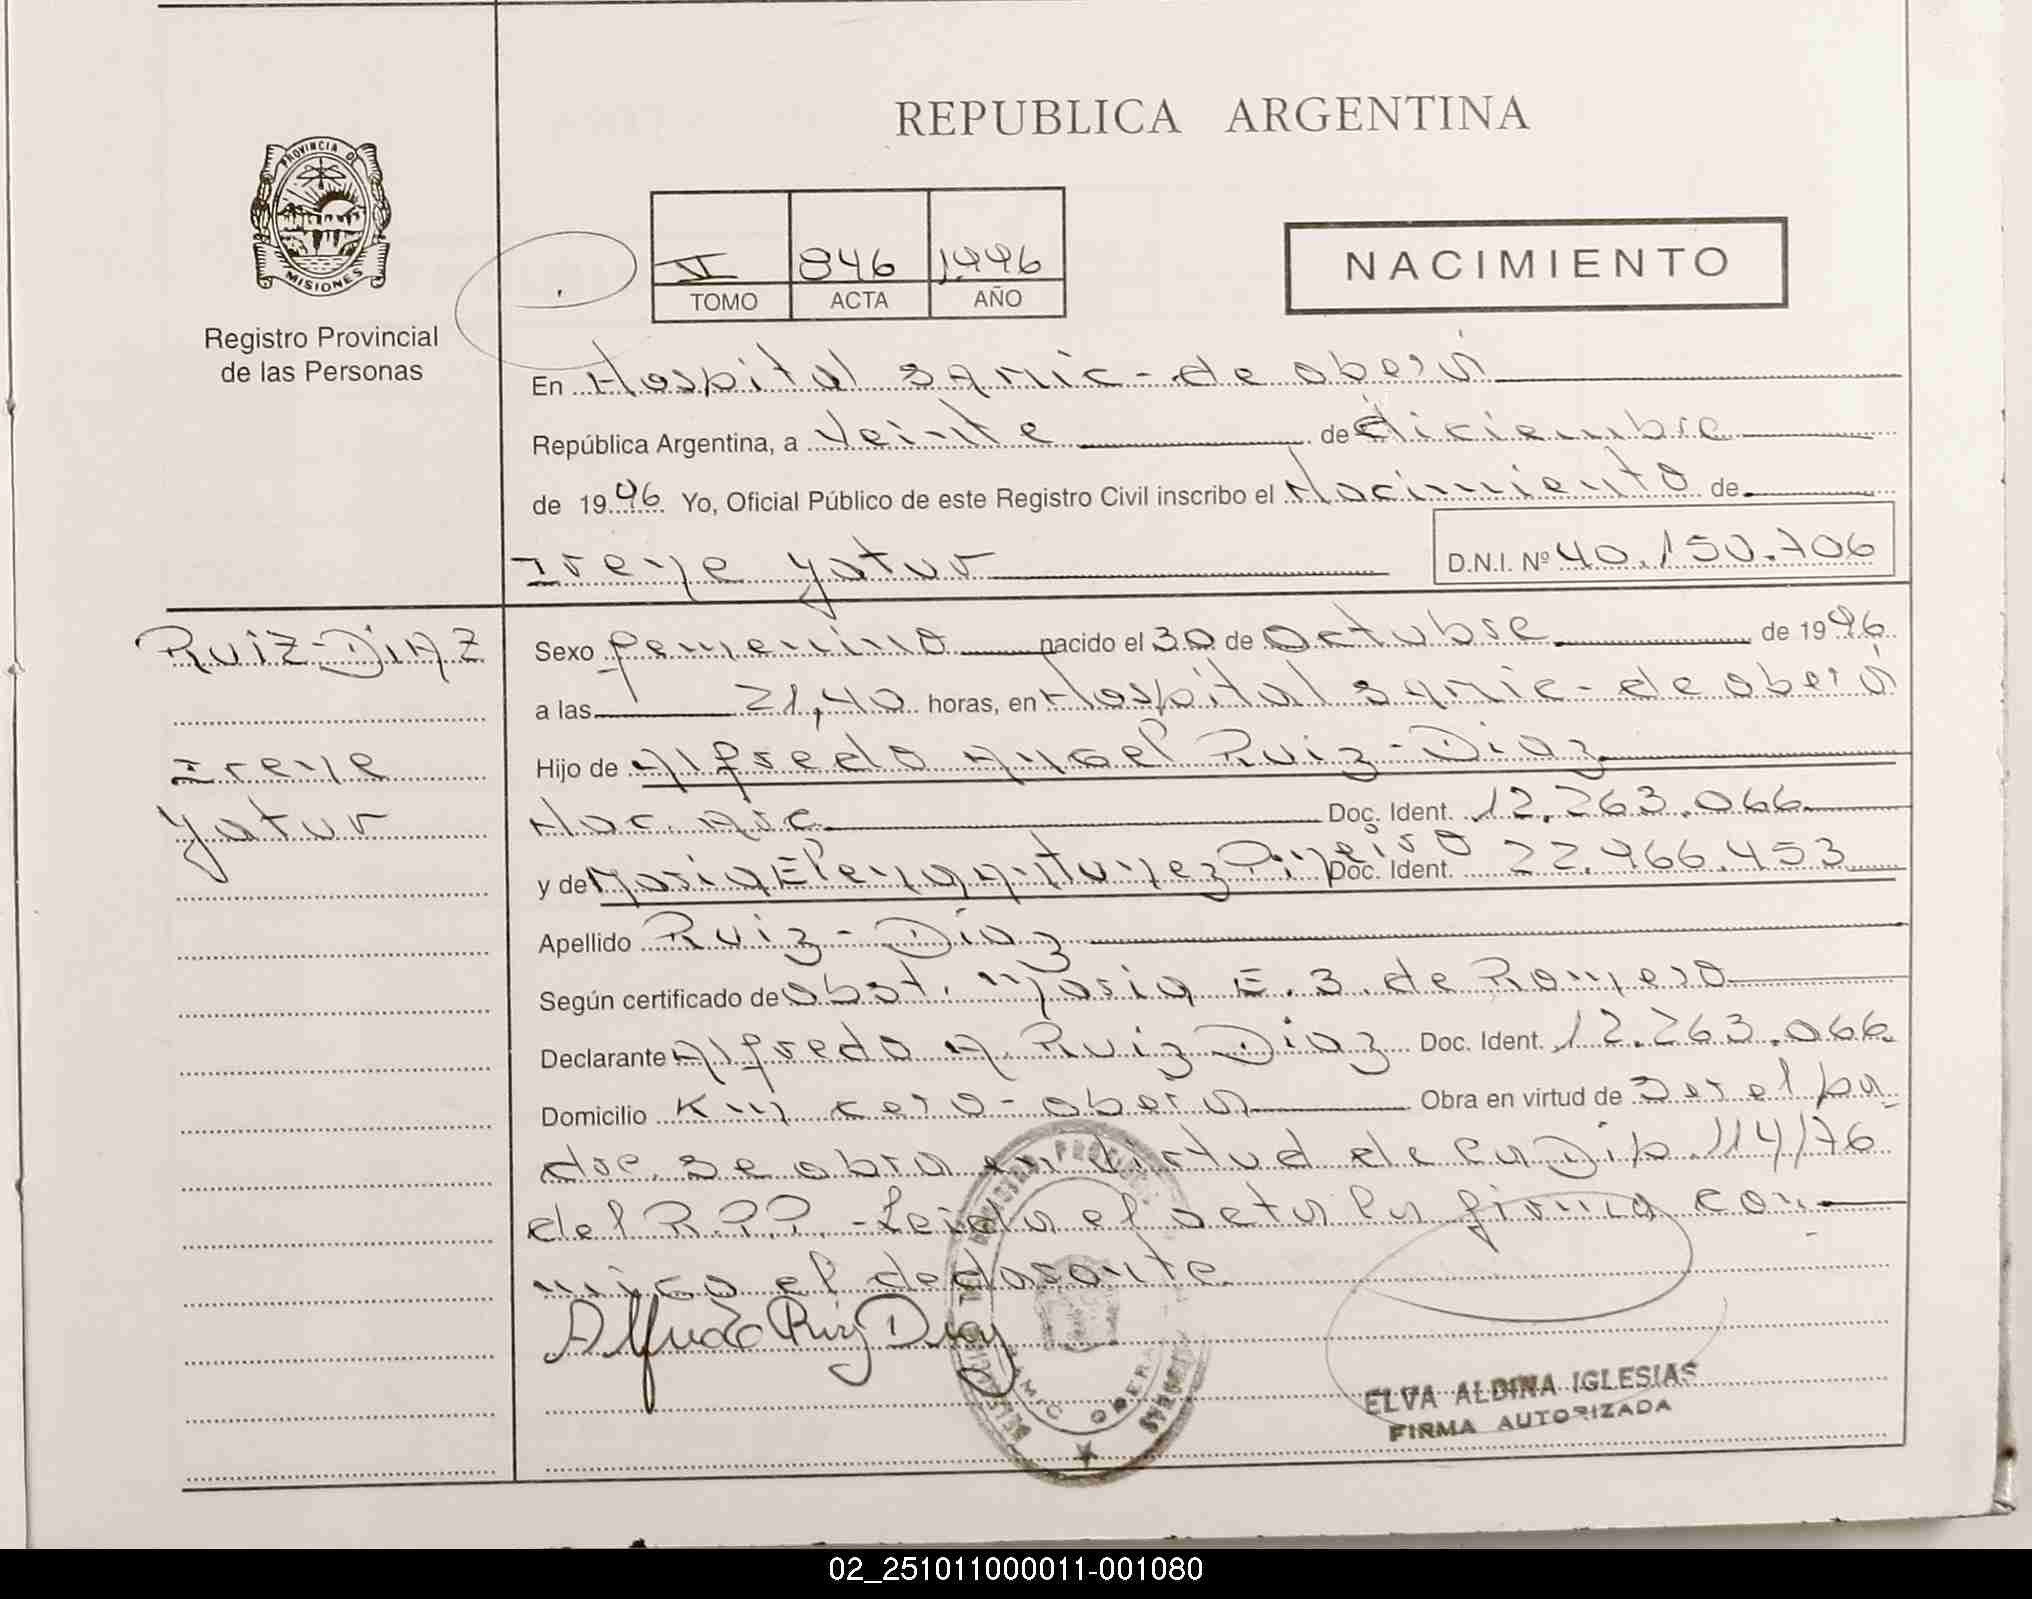 REPUBLICA ARGENTINA
PROVINCIA DE
MISIONES
Registro Provincial
de las Personas
VI 846 1996
TOMO ACTA AÑO
NACIMIENTO
En Hospital Samic - de oberá
República Argentina, a veinte de diciembre
de 1996 Yo, Oficial Público de este Registro Civil inscribo el Nacimiento de
Irene yatur D.N.I. Nº 40.150.706
Ruiz-DiAZ
Irene
yatur
Sexo femenino nacido el 30 de octubre de 1996
a las 21,40 horas, en Hospital samic - de oberá
Hijo de Alfredo Angel Ruiz - Diaz
Nac. Arg. Doc. Ident. 12.263.066
y de Maria Elena Antunez Pineiro Doc. Ident. 22.966.453
Apellido Ruiz - Diaz
Según certificado de obst. Maria E. B. de Romero
Declarante Alfredo A. Ruiz Diaz Doc. Ident. 12.263.066
Domicilio Km cero - oberá Obra en virtud de Ser el pa
dre. Se obra en virtud de la Disp. 114/76
del R.P.P. - Leida el acta la firma con-
migo el declarante
Alfredo Ruiz Diaz
ELVA ALDINA IGLESIAS
FIRMA AUTORIZADA
02_251011000011-001080